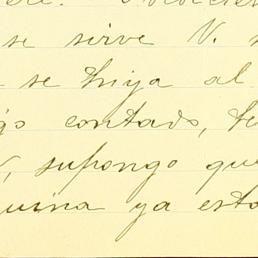 se sirve V. s
se haya al
go contado, te
, supongo que
uina ya esto